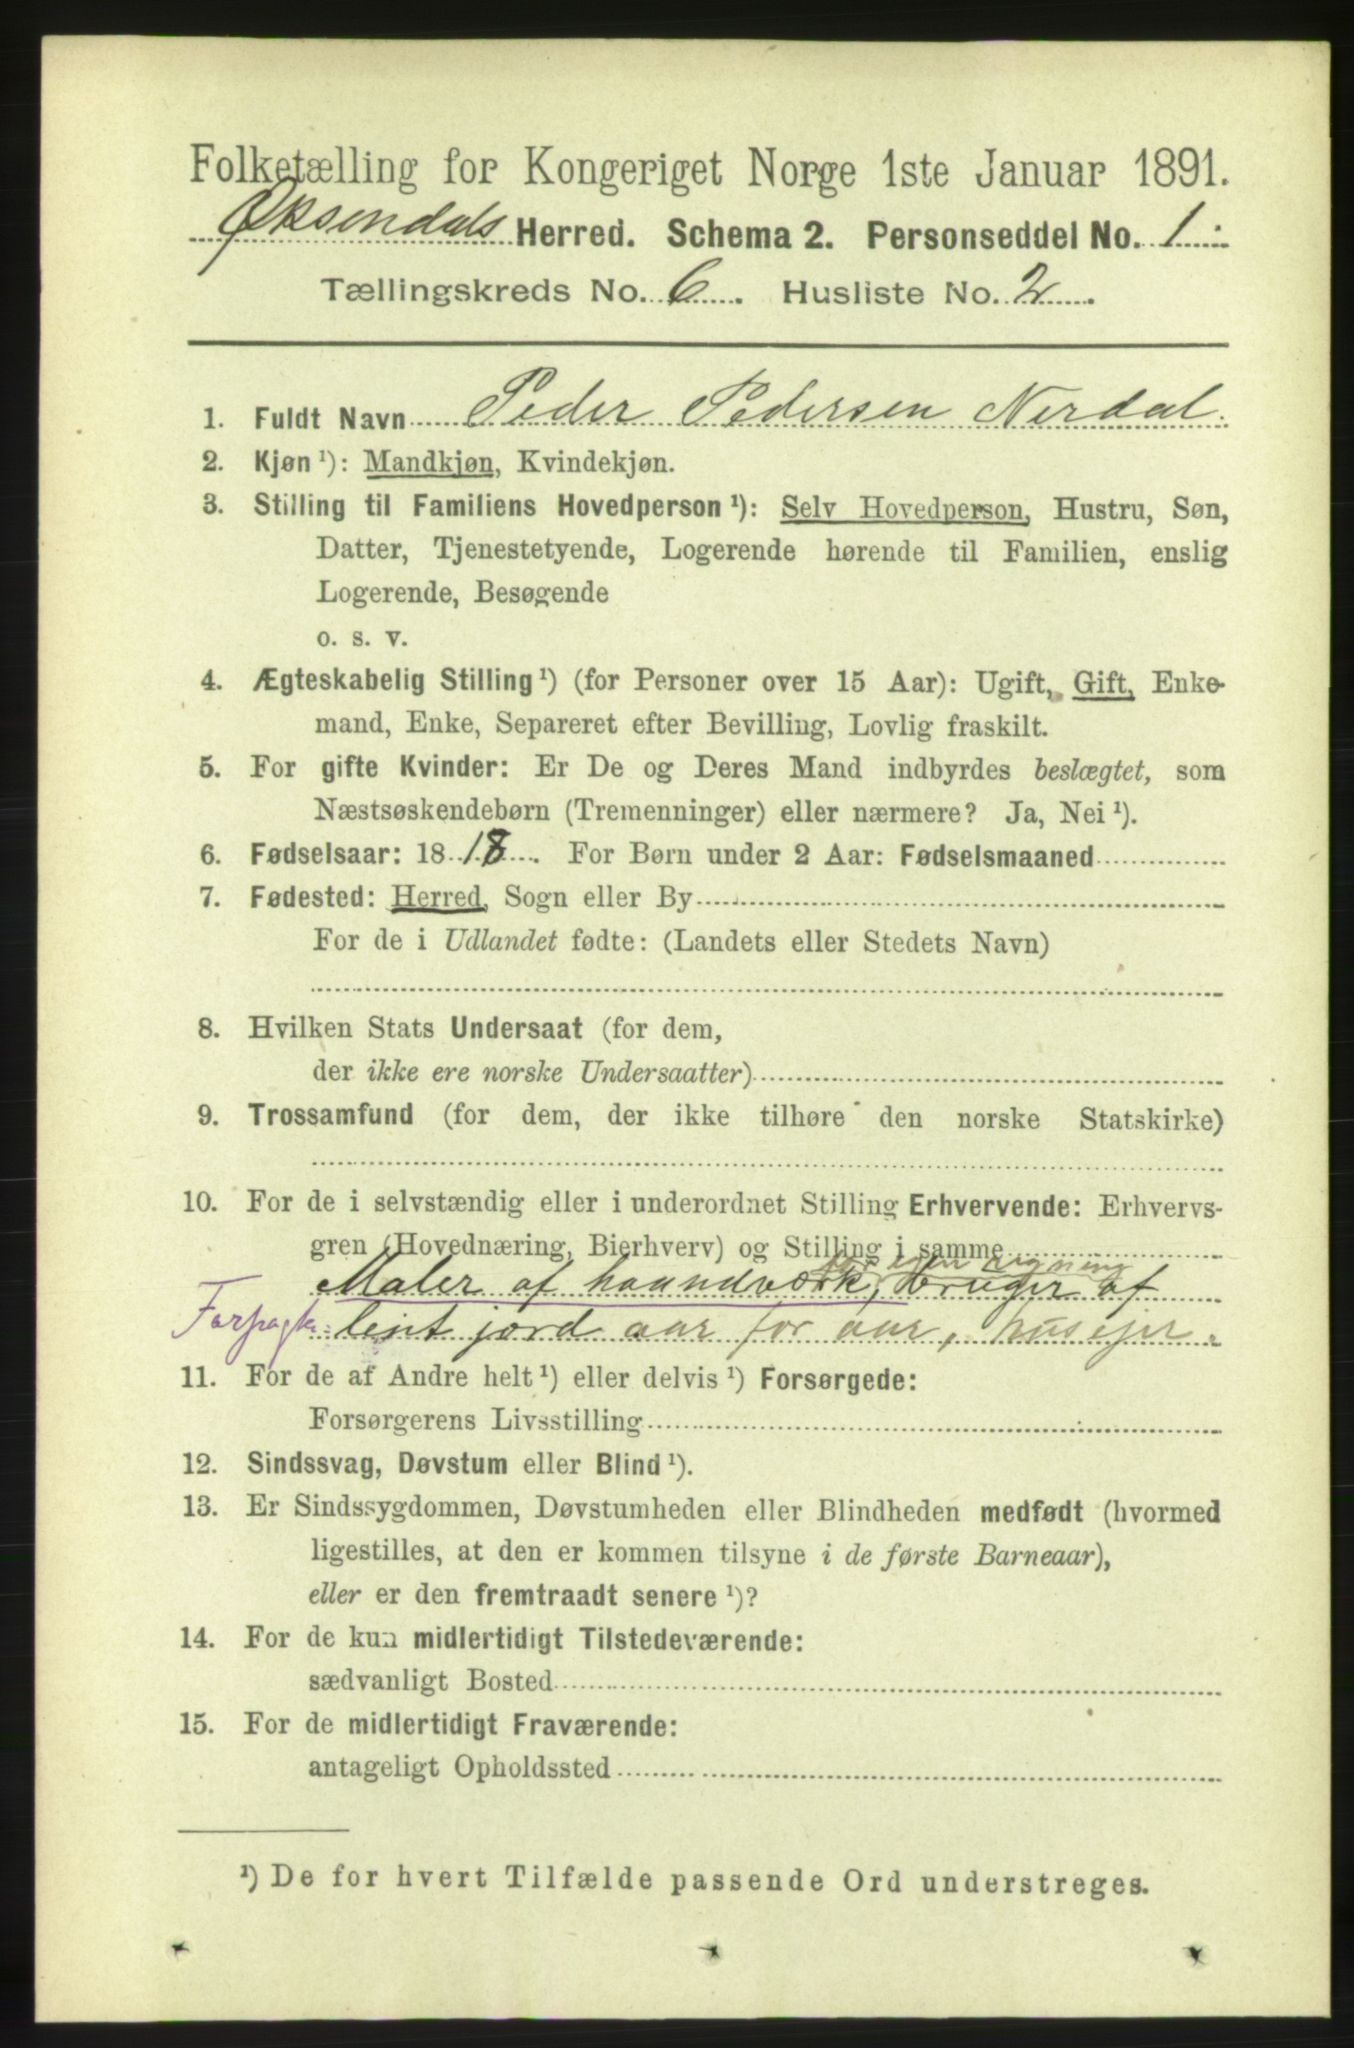 Folketælling for Kongeriget Norge 1ste Januar 1891.
Øksendals Herred. Schema 2. Personseddel No. 1.
Tællingskreds No. 6. Husliste No. 2.
1. Fuldt Navn Peder Pedersen Nerdal.
2. Kjøn ¹): Mandkjøn, Kvindekjøn.
3. Stilling til Familiens Hovedperson ¹): Selv Hovedperson, Hustru, Søn,
Datter, Tjenestetyende, Logerende hørende til Familien, enslig
Logerende, Besøgende
o. s. v.
4. Ægteskabelig Stilling ¹) (for Personer over 15 Aar): Ugift, Gift, Enke-
mand, Enke, Separeret efter Bevilling, Lovlig fraskilt.
5. For gifte Kvinder: Er De og Deres Mand indbyrdes beslægtet, som
Næstsøskendebørn (Tremenninger) eller nærmere? Ja, Nei ¹).
6. Fødselsaar: 1818. For Børn under 2 Aar: Fødselsmaaned
7. Fødested: Herred, Sogn eller By
For de i Udlandet fødte: (Landets eller Stedets Navn)
8. Hvilken Stats Undersaat (for dem,
der ikke ere norske Undersaatter)
9. Trossamfund (for dem, der ikke tilhøre den norske Statskirke)
10. For de i selvstændig eller i underordnet Stilling Erhvervende: Erhvervs-
gren (Hovednæring, Bierhverv) og Stilling i samme
for egen regning
Maler af haandværk, bruger af
Forpagter leiet jord aar for aar, husejer.
11. For de af Andre helt ¹) eller delvis ¹) Forsørgede:
Forsørgerens Livsstilling
12. Sindssvag, Døvstum eller Blind ¹).
13. Er Sindssygdommen, Døvstumheden eller Blindheden medfødt (hvormed
ligestilles, at den er kommen tilsyne i de første Barneaar),
eller er den fremtraadt senere ¹)?
14. For de kun midlertidigt Tilstedeværende:
sædvanligt Bosted
15. For de midlertidigt Fraværende:
antageligt Opholdssted
¹) De for hvert Tilfælde passende Ord understreges.